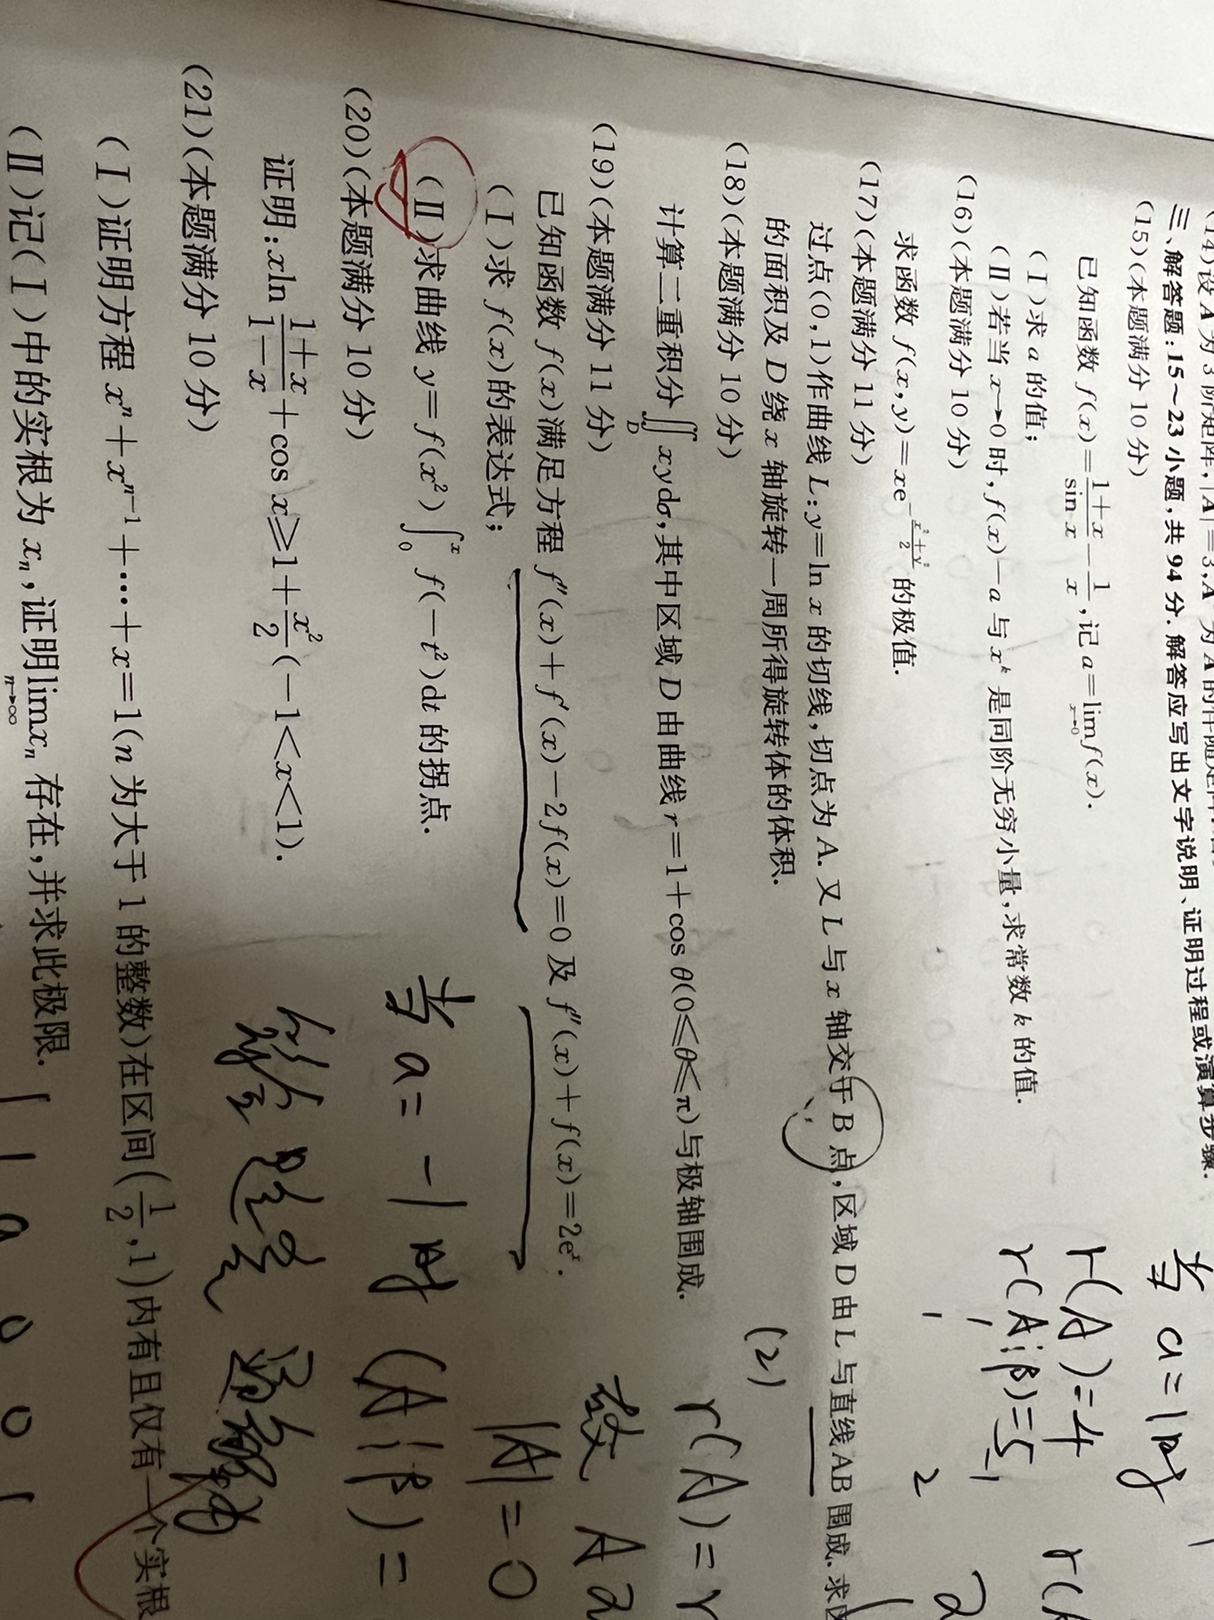 (14)设A为3阶矩阵,|A|=3,A*为A的伴随矩阵
三、解答题:15~23小题,共94分.解答应写出文字说明、证明过程或演算步骤.
(15)(本题满分10分)
已知函数 f(x)=\frac{1+x}{\sin x}-\frac{1}{x},记 a=\lim_{x→0}f(x).
(Ⅰ)求 a 的值;
(Ⅱ)若当 x→0 时,f(x)-a 与 x^k 是同阶无穷小量,求常数 k 的值.
(16)(本题满分10分)
求函数 f(x,y)=xe^{-\frac{x²+y²}{2}} 的极值.
(17)(本题满分11分)
过点(0,1)作曲线 L:y=ln x 的切线,切点为 A.又 L 与 x 轴交于 B 点,区域 D 由 L 与直线 AB 围成.求区
的面积及 D 绕 x 轴旋转一周所得旋转体的体积.
(18)(本题满分10分)
计算二重积分∬_D xydσ,其中区域 D 由曲线 r=1+cos θ(0≤θ≤π)与极轴围成.
(19)(本题满分11分)
已知函数 f(x)满足方程 f″(x)+f′(x)-2f(x)=0 及 f″(x)+f(x)=2e^x.
(Ⅰ)求 f(x)的表达式;
(Ⅱ)求曲线 y=f(x²)∫_0^x f(-t²)dt 的拐点.
(20)(本题满分10分)
证明:xln\frac{1+x}{1-x}+cos x≥1+\frac{x²}{2}(-1<x<1).
(21)(本题满分10分)
(Ⅰ)证明方程 x^n+x^{n-1}+…+x=1(n为大于1的整数)在区间(\frac{1}{2},1)内有且仅有一个实根
(Ⅱ)记(Ⅰ)中的实根为 x_n,证明\lim_{n→∞}x_n 存在,并求此极限.
当 a=1时
r(A)=4
r(A¦β)=5
(2)
r(A)=r
故 A2
|A|=0
当 a=-1时 (A¦β)=
1 a 0 0 1